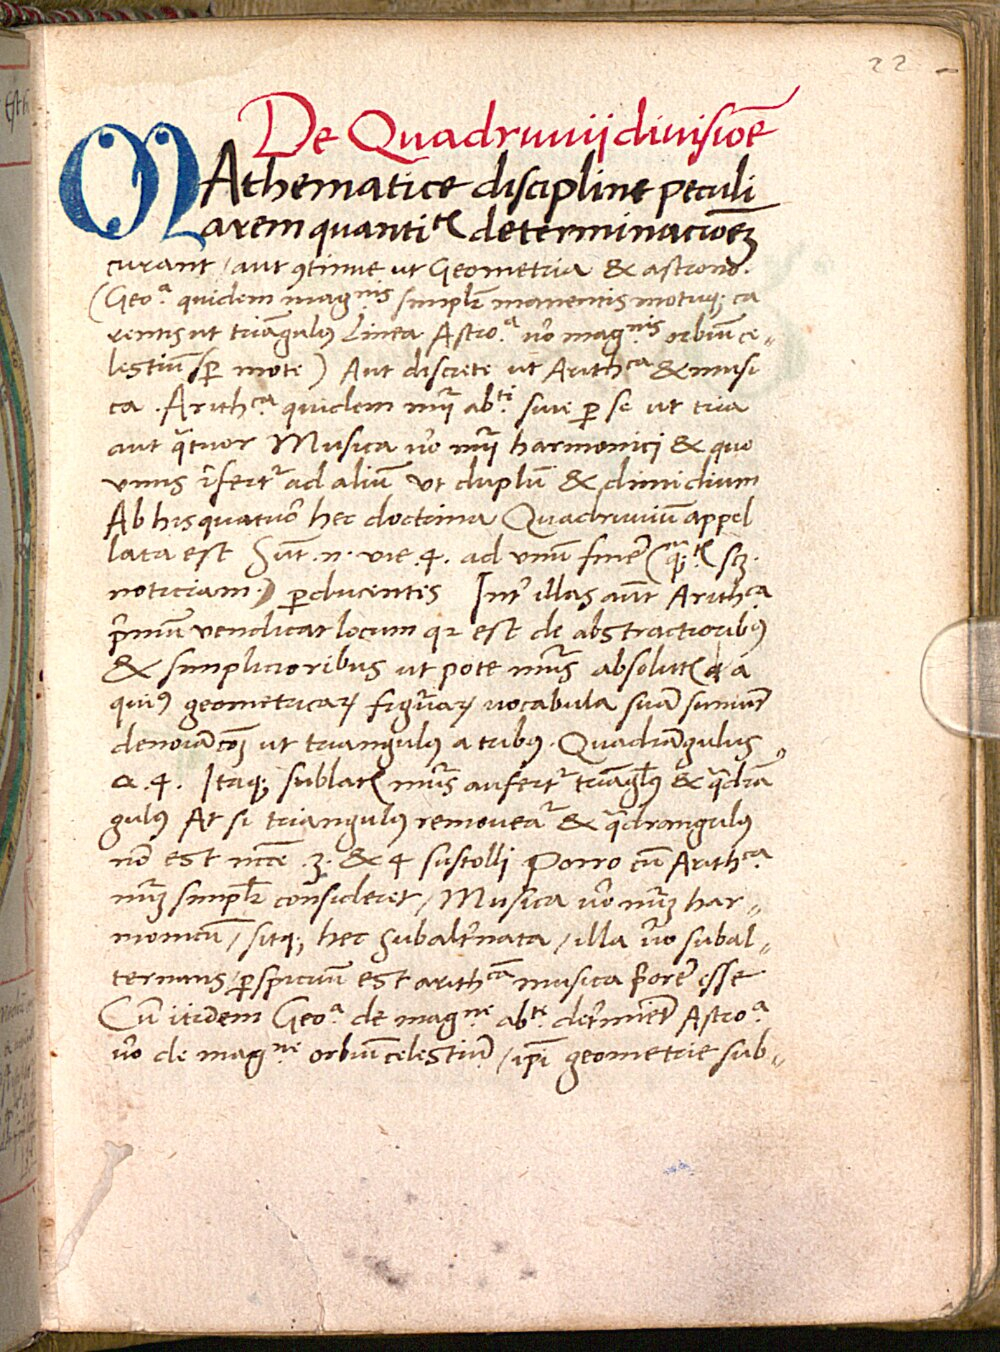 22
De Quadruuij diuisiõe
MAthematice discipline peculi
arem quantitꝭ determinacioẽꝫ
curant / aut ꝯtinue ut Geometria & astrono.
(Geo.ª quidem magⁿⁱˢ simplr̃ manentis motuqꝫ ca
rentis ut triãgulꝯ Linea Astro.ª ũo mag.ⁿⁱˢ orbiũ ce„
lestiũ sꝑ mote ) Aut discrete ut Arithᶜᵃ & musi
ca . Arith.ᶜᵃ quidem nũi ab.ᵗⁱ siue ꝑ se ut tria
aut q̃tuor Musica ũo nũi harmonici & quo
unus r̃fertʳ ad aliũ ut duplũ & dimidium
Ab his quatuoʳ hec doctrina Quadruuiũ appel
lata est Sũt .n. vie .4. ad vnũ finẽ (q̃.ꝭ sꝫ.
noticiam.) ꝑducentis Intʳ illas aũt Arithᶜᵃ
p̃mũ vendicat locum qꝛ est de abstractioribꝯ
& simplicioribus ut pote nũis absolutꝭ & a
quiꝯ geometricaꝝ figũaꝝ uocabula suã sumũt
denoĩacõꝫ ut triangulꝯ a tribꝯ. Quadrãgulus„
a .4. Itaqꝫ sublatꝭ nũis aufertʳ triãgl̃us & q̃drã
gulꝯ At si triangulꝯ remoueaʳ & q̃drangulꝯ
nõ est ncc̃e 3. & 4 sustolli Porro cũ Arithᶜᵃ
nũꝫ simplr̃ consideret / Musica ũo nũꝫ har„
monicũ / sitqꝫ hec subaltʳnata / illa ũo subal„
ternans / ꝑspicuũ est arithᶜᵃ̃ musica p̃orẽ esse
Cũ itidem Geo.ª de mag.ⁿᵉ ab.ᵗᵉ detʳmĩet Astro.ª
ũo de magⁿᵉ orbiũ celestiũ / ip̃i geometrie sub„